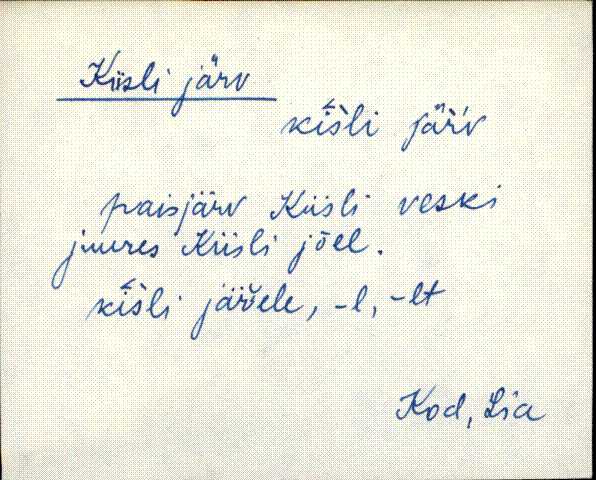 Kiisli järv
kìsli järv
paisjärv Kiisli veski
juures Kiisli jõel.
kìsli järvele, -l, -lt
Kod, Lia